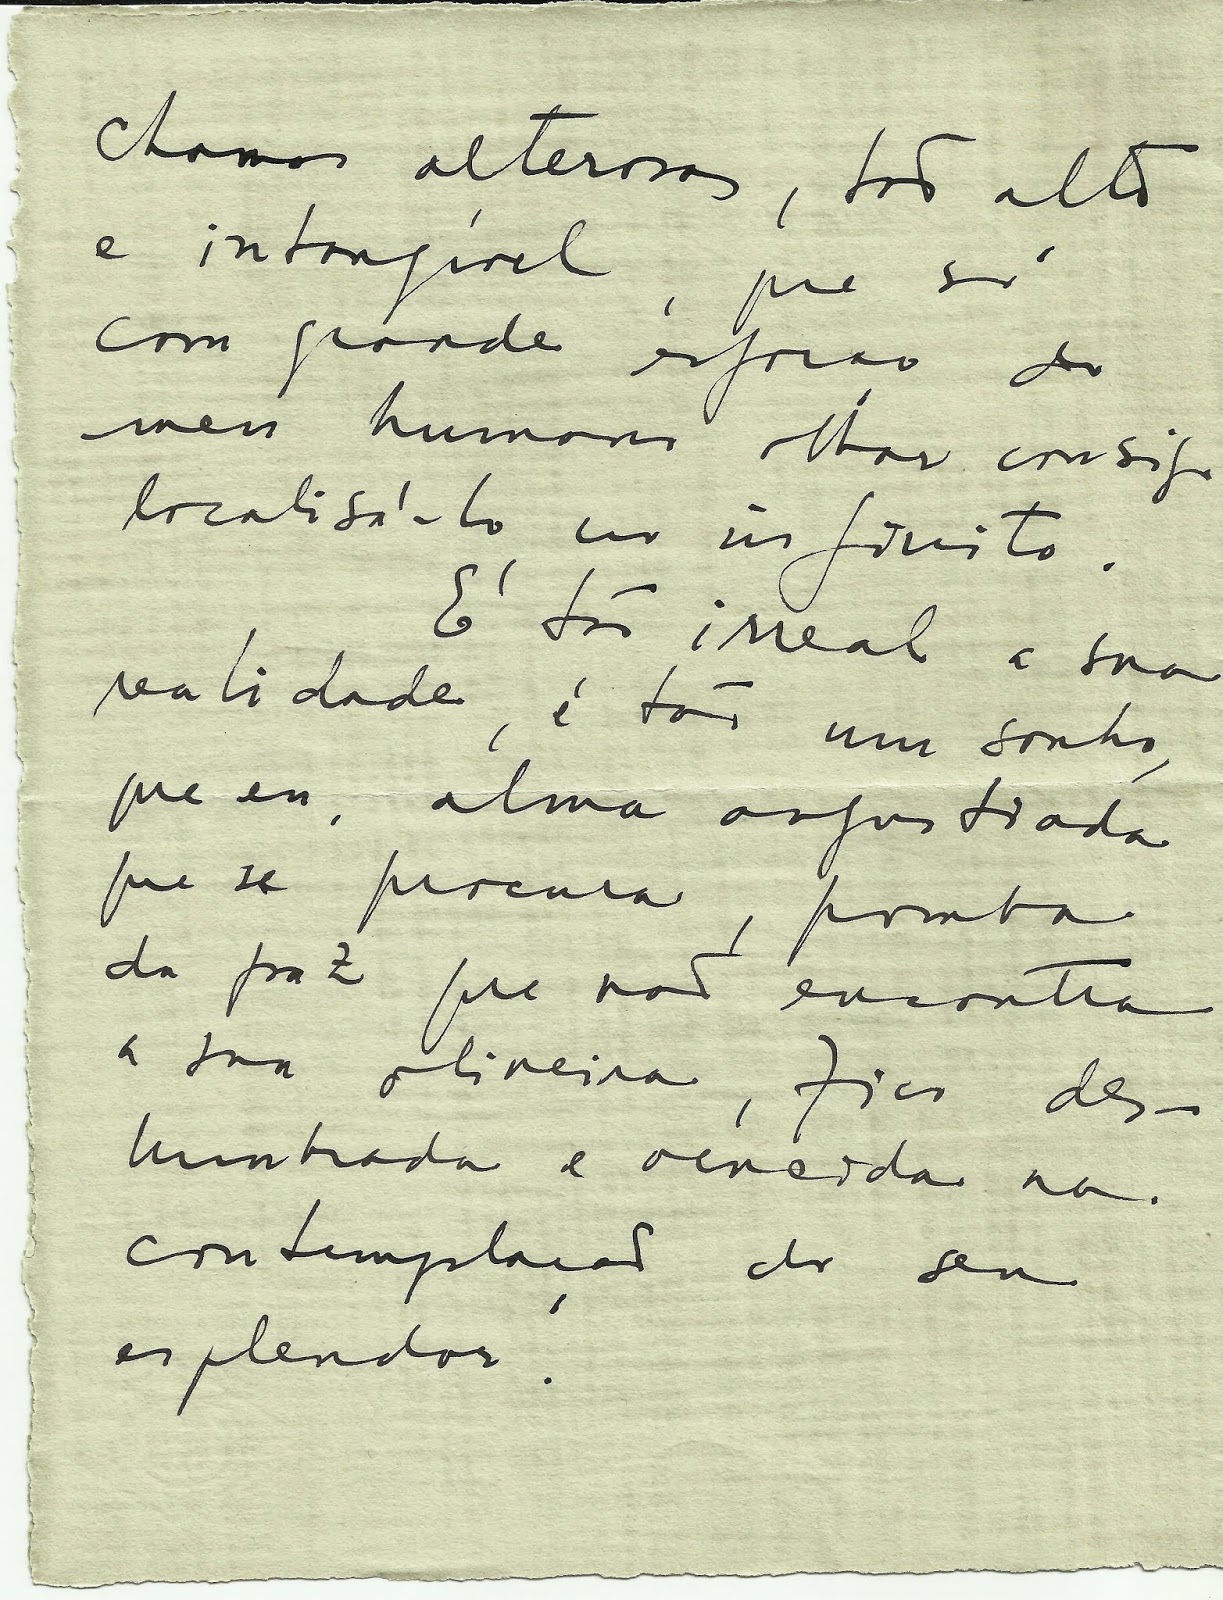 chamas alterosas, tão alto
e intangível, que só
com grande esforço do
meu humano olhar consigo
localisá-lo no infinito.
É tão irreal a sua
realidade, é tão um sonho,
que eu, alma angustiada
que se procura, pomba
da paz que não encontra
a sua oliveira, fico des-
lumbrada e vencida na
contemplação do seu
esplendor.